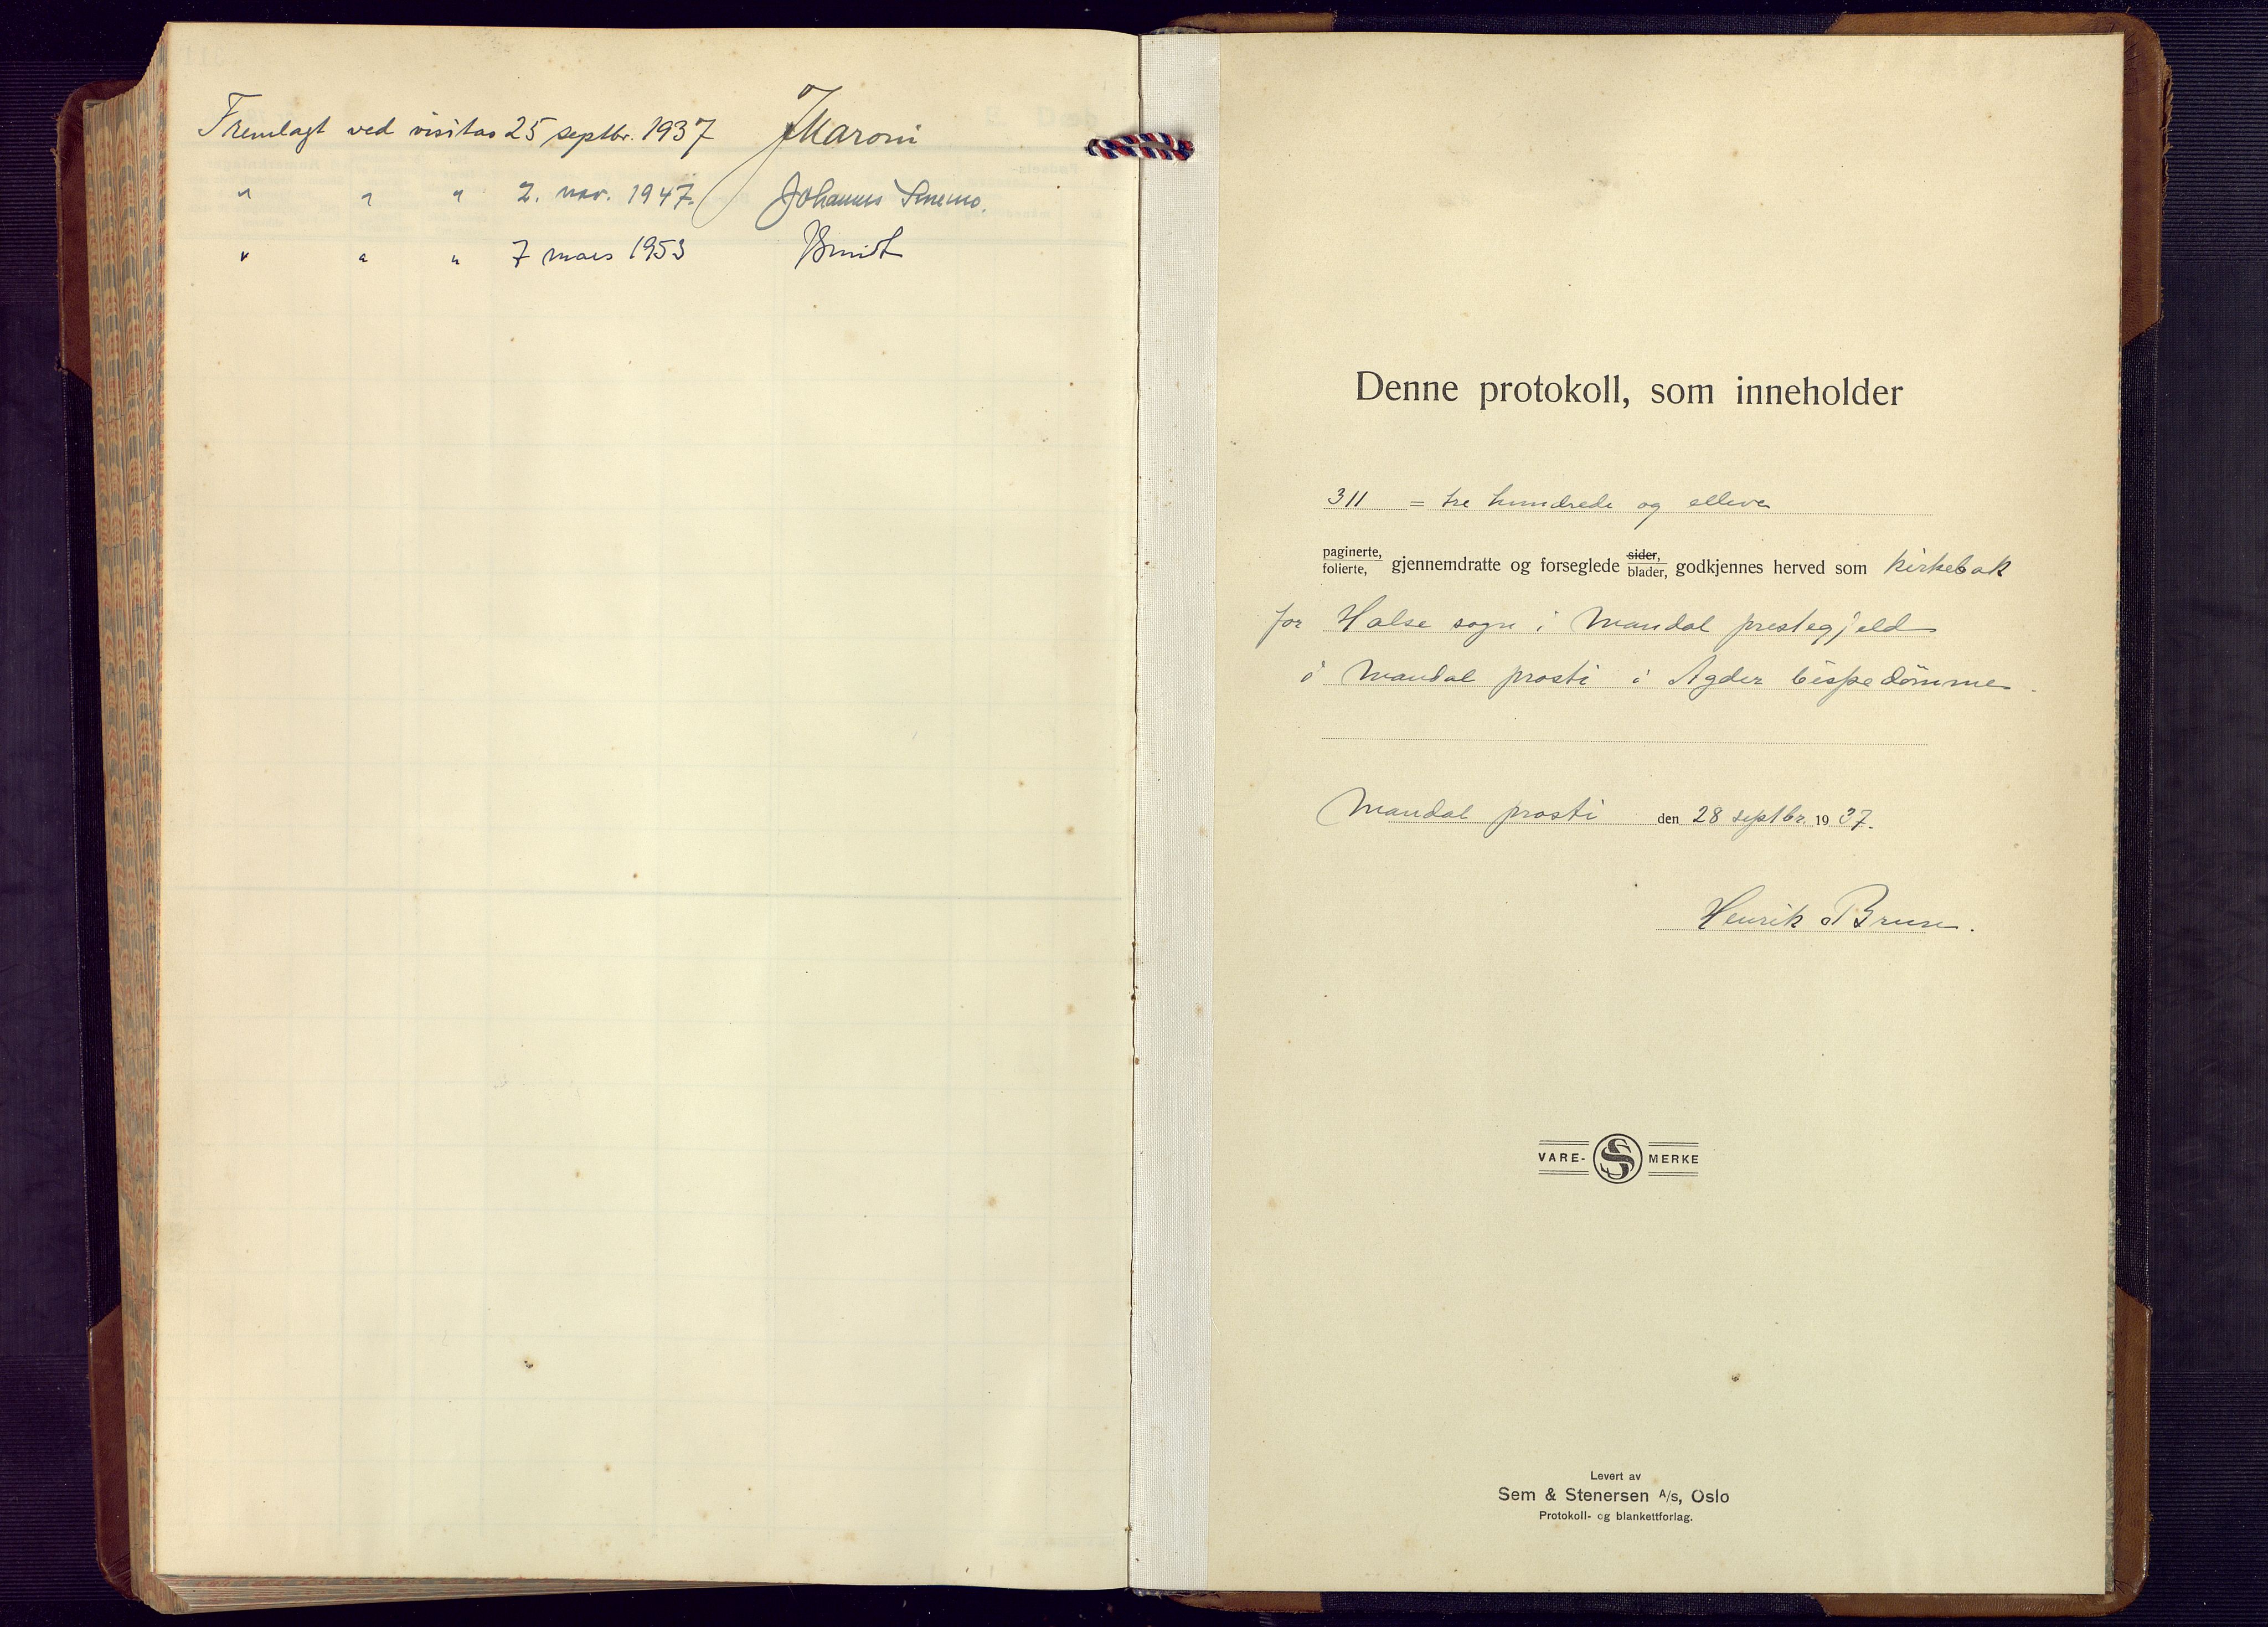 Fremlagt ved visitas 25 septbr. 1937 JMaroni
" " " 2. nov. 1947. Johannes Smemo.
" " " 7 mars 1953 JSmidt
Denne protokoll, som inneholder
311 = tre hundrede og elleve
paginerte, folierte, gjennemdratte og forseglede sider, blader, godkjennes herved som kirkebok
for Halse sogn i Mandal prestegjeld
i Mandal prosti i Agder bispedömme.
Mandal prosti den 28 septbr. 1937.
Henrik Bruun.
VARE- S MERKE
Levert av
Sem & Stenersen A/s, Oslo
Protokoll- og blankettforlag.